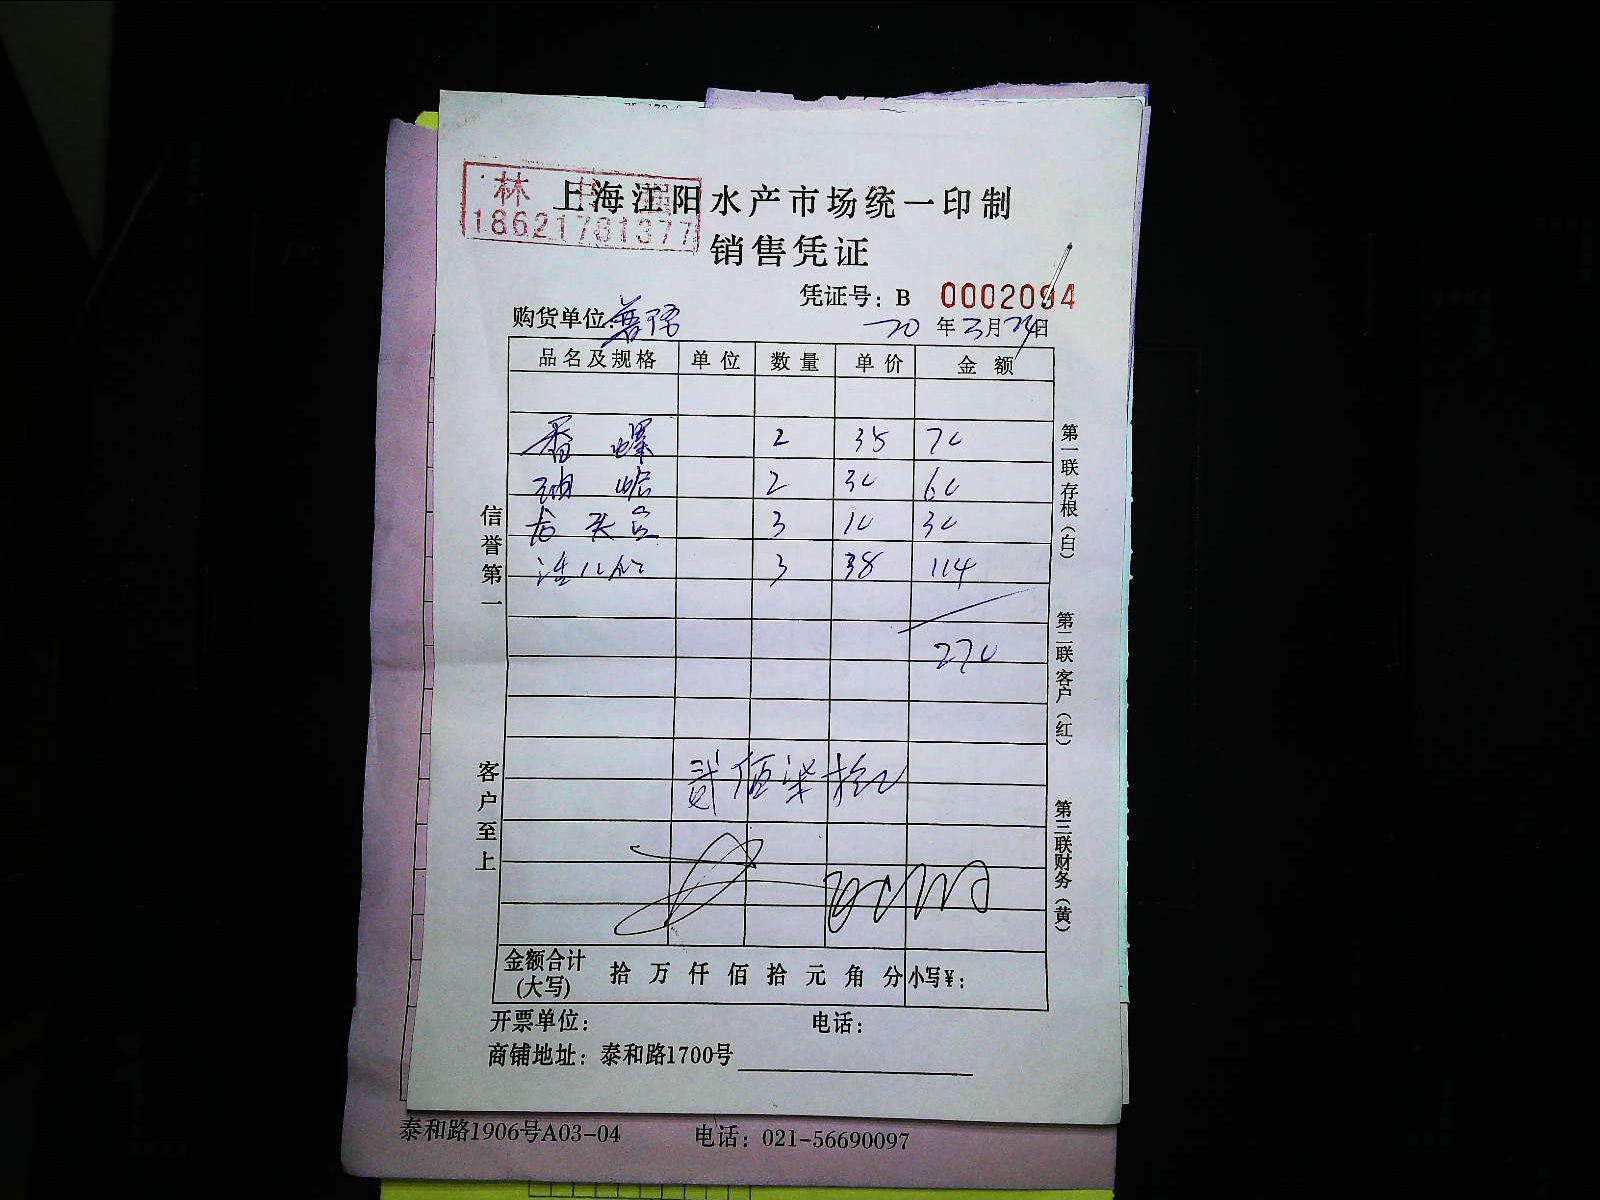 林
18621781377
上海江阳水产市场统一印制
销售凭证
凭证号：B 0002094
购货单位：普陀
20 年 3 月 24 日
品名及规格 单位 数量 单价 金额
香螺 2 35 70
油蛤 2 30 60
龙头鱼 3 10 30
3 38 114
270
贰佰柒拾元
金额合计(大写) 拾 万 仟 佰 拾 元 角 分 小写￥：
开票单位： 电话：
商铺地址：泰和路1700号
信誉第一
客户至上
第一联存根（白）
第二联客户（红）
第三联财务（黄）
泰和路1906号A03-04 电话：021-56690097